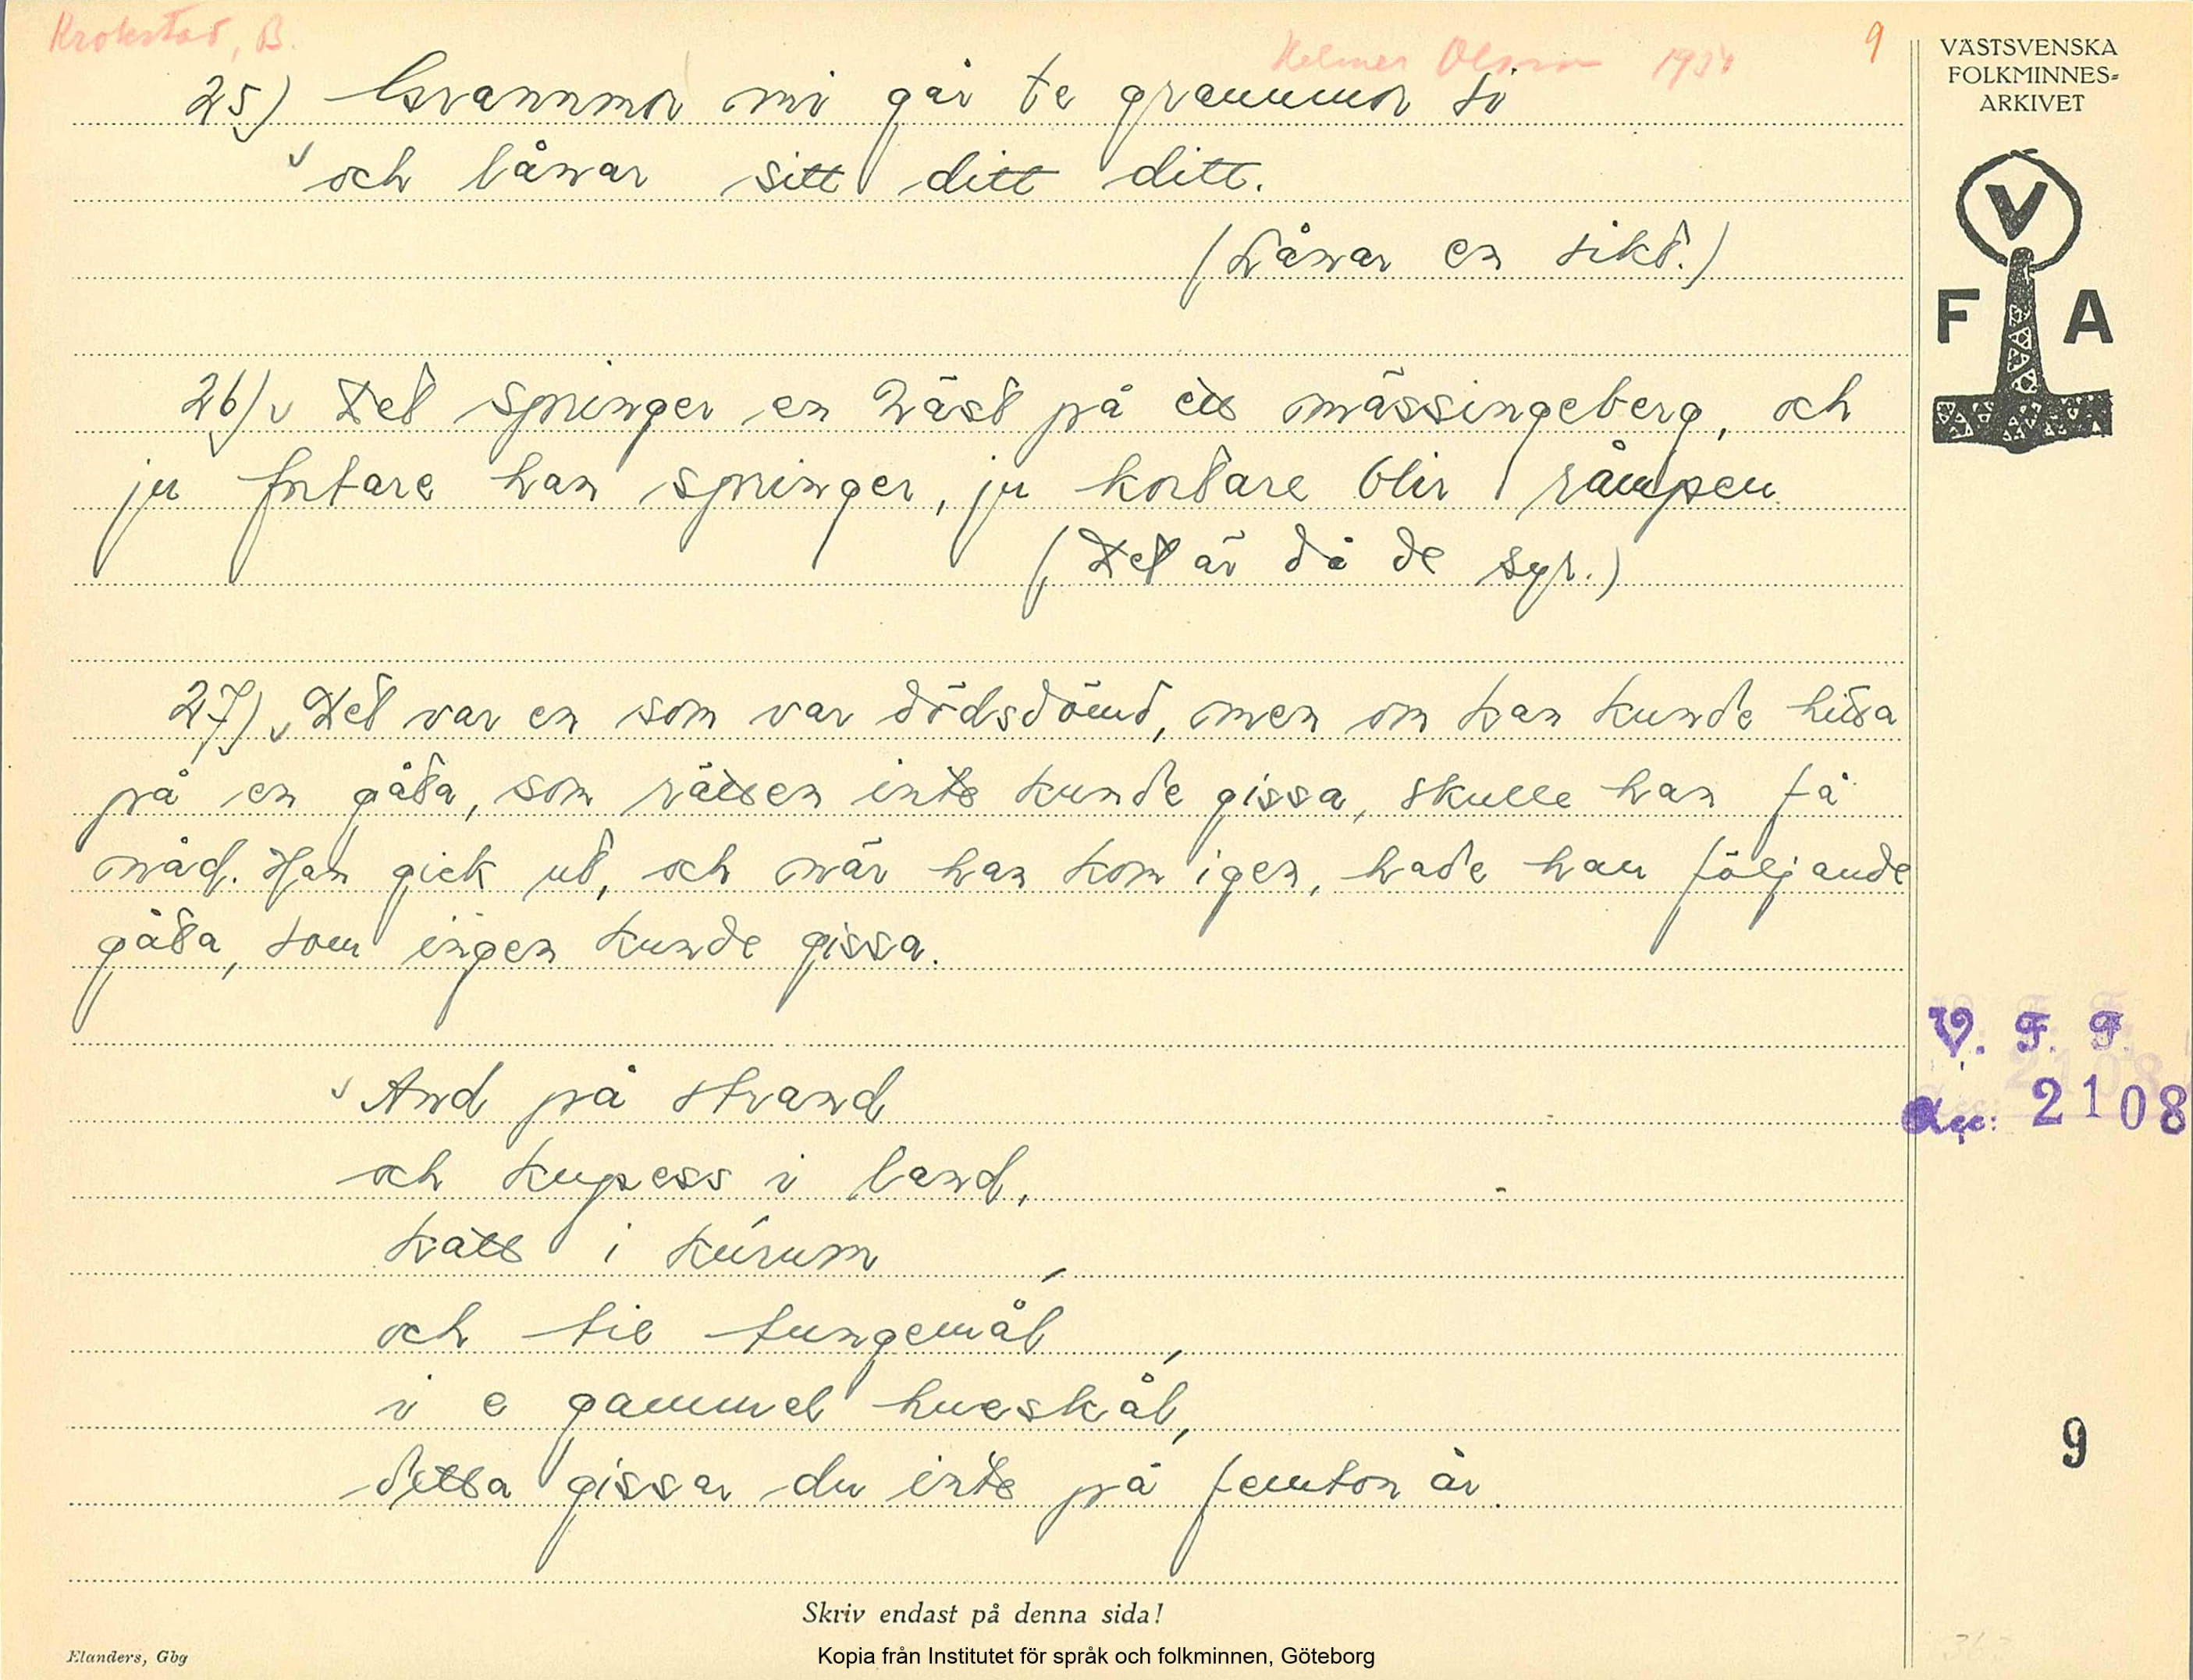 Krokstad, B.
Helmer Olsson 1930
9
VÄSTSVENSKA
FOLKMINNES-
ARKIVET
V
F A
25) Grannmor mi går te grannmor di
och lånar sitt ditt ditt.
(Lånar en sikt.)
26) Det springer en häst på ett mässingeberg, och
ju fortare han springer, ju kortare blir råmpen.
(Det är då de syr.)
27) Det var en som var dödsdömd, men om han kunde hitta
på en gåta, som rätten inte kunde gissa, skulle han få
nåd. Han gick ut, och när han kom igen, hade han följande
gåta, som ingen kunde gissa.
And på strand
och kupess i land,
katt i kúrum,
och tie tungemål,
i e gammel hueskål,
detta gissar du inte på femton år.
V. F. F.
Acc: 2108
9
Skriv endast på denna sida!
Elanders, Gbg
Kopia från Institutet för språk och folkminnen, Göteborg